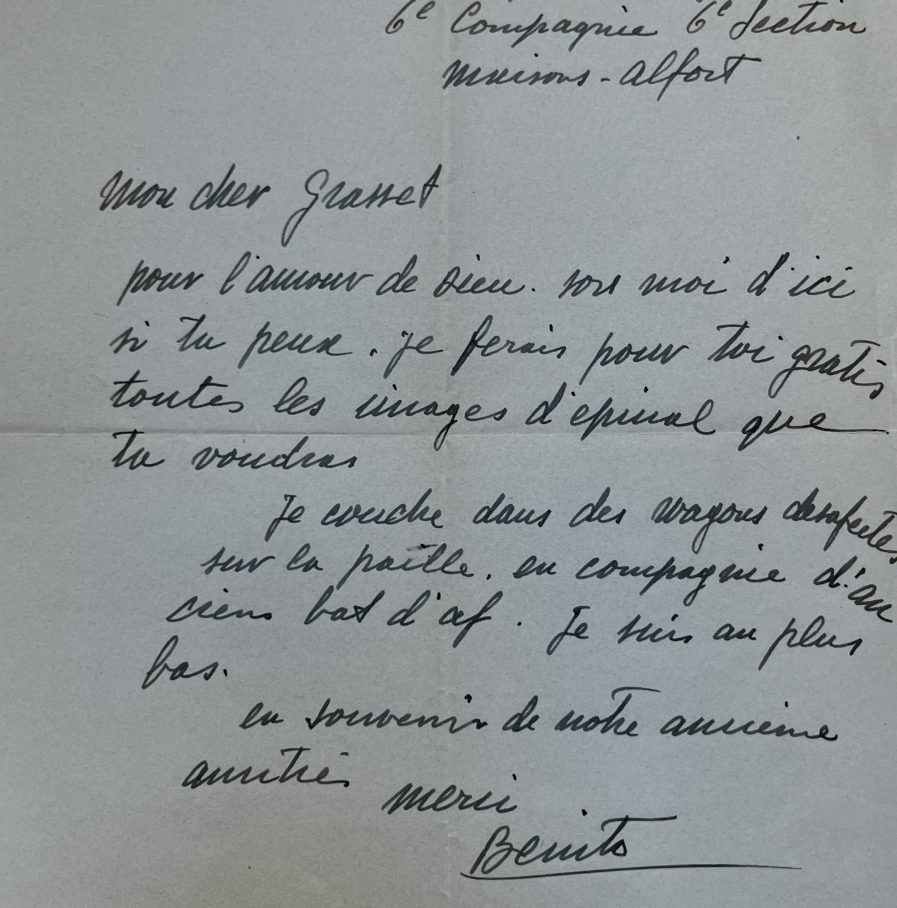 6e Compagnie 6e Section
Maisons-Alfort
Mon cher Grasset
pour l'amour de Dieu. sors moi d'ici
si tu peux. je ferais pour toi gratis
toutes les images d'epinal que
tu voudras
Je couche dans des wagons desafectes
sur la paille. en compagnie d'an
ciens bat d'af. Je suis au plus
bas.
en souvenir de notre ancienne
amitié
merci
Benito